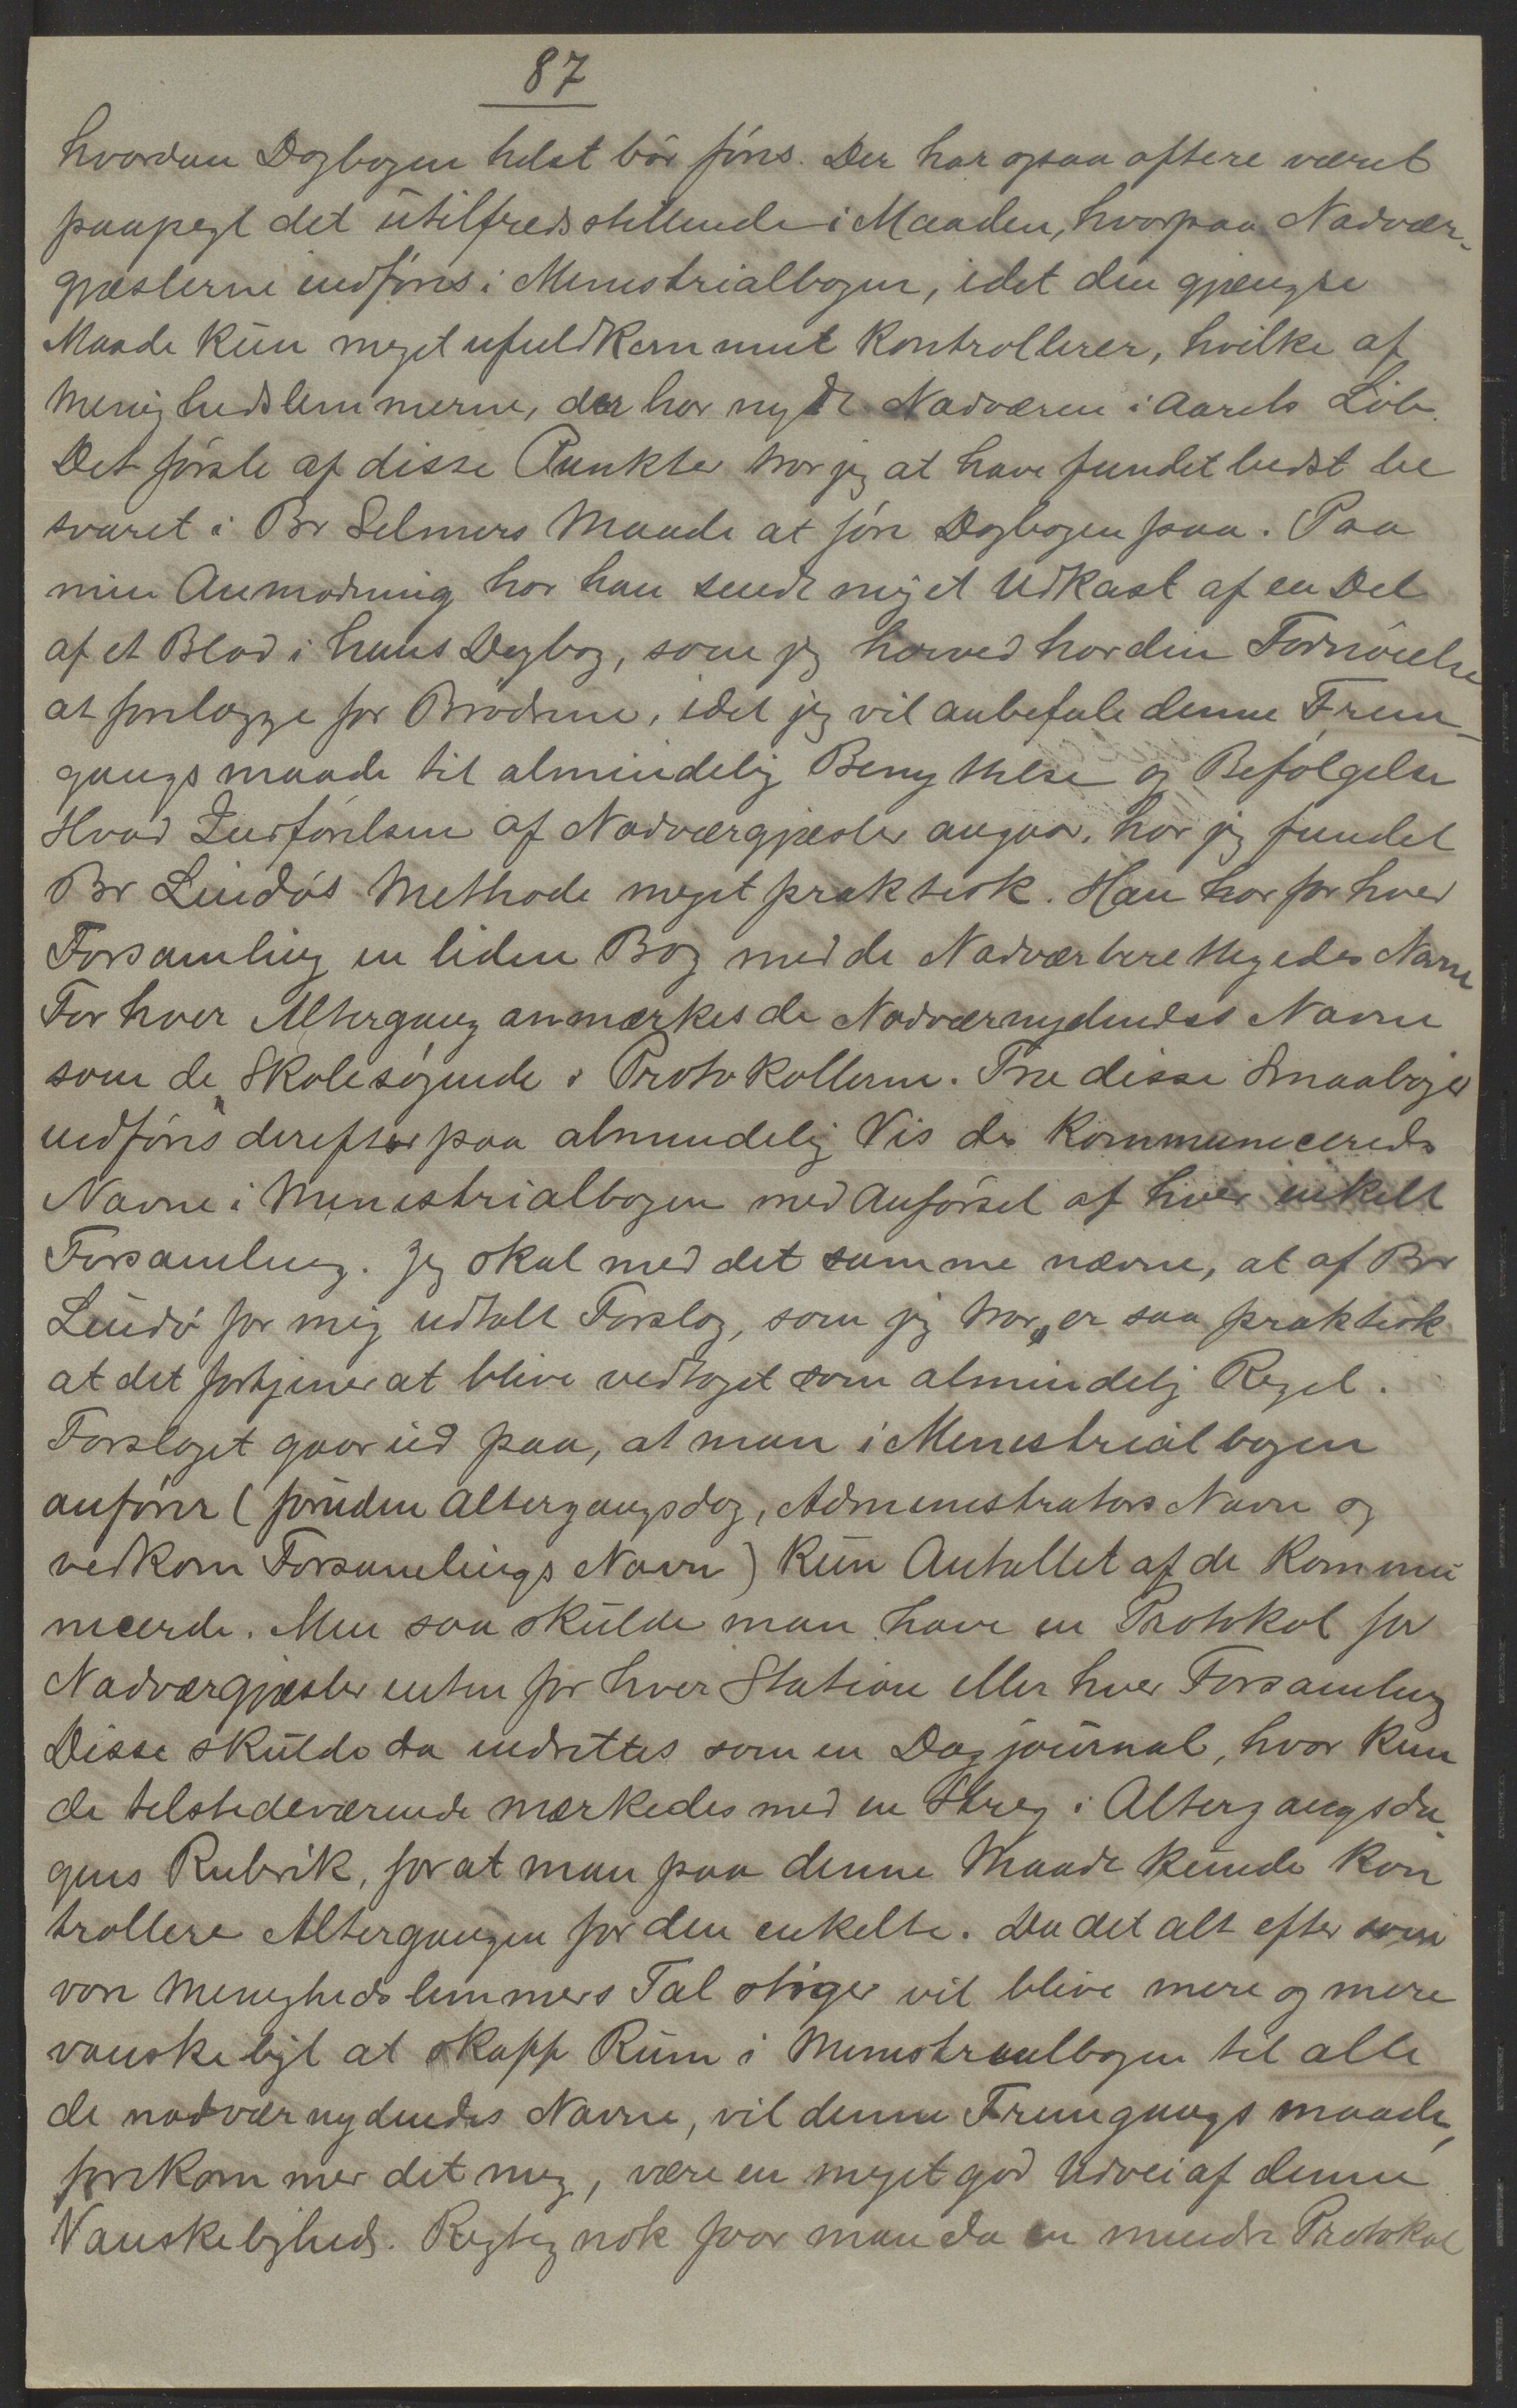 87
hvordan Dagbogen helst bör föres. Der har ogsaa oftere været
paapegt det utilfredsstillende i Maaden, hvorpaa Nadvær-
gjæsterne indföres i Ministrialbogen, idet den gjængse
Maade kun meget ufuldkomment kontrollerer, hvilke af
Menighedslemmerne, der har nydt Nadværen i Aarets Löb.
Det förste af disse Punkter tror jeg at have fundet bedst be
svaret i Br Selmers Maade at före Dagbogen paa. Paa
min Anmodning har han sendt mig et Udkast af en Del
af et Blad i hans Dagbog, som jeg herved har den Fornöielse
at forelægge for Brödrene, idet jeg vil anbefale denne Frem-
gangsmaade til almindelig Benyttelse og Befölgelse
Hvad Indförelsen af Nadværgjæster angaar, har jeg fundet
Br Lindös Methode meget praktisk. Han har for hver
Forsamling en liden Bog med de Nadværberettigedes Navne
For hver Altergang anmærkes de Nadværnydendes Navne
som de Skolesøgende i Protokollerne. Fra disse Smaabøger
indföres derefter paa almindelig Vis de kommuniceredes
Navne i Ministrialbogen med Anförsel af hver enkelt
Forsamling. Jeg skal med det samme nævne, at af Br
Lindö for mig udtalt Forslag, som jeg tror, er saa praktisk
at det fortjener at blive vedtaget som almindelig Regel.
Forslaget gaar ud paa, at man i Ministrialbogen
anförer (foruden Altergangsdag, Administrators Navn og
vedkom Forsamlings Navn) kun Antallet af de kommu
nicerde. Men saa skulde man have en Protokol for
Nadværgjæster enten for hver Station eller hver Forsamling
Disse skulde da indrettes som en Dagjournal, hvor kun
de tilstedeværende mærkedes med en Streg i Altergangsda-
gens Rubrik, for at man paa denne Maade kunde kon
trollere Altergangen for den enkelte. Da det alt efter som
vore Menighedslemmers Tal stiger vil blive mere og mere
vanskeligt at skaffe Rum i Ministrialbogen til alle
de nadværnydendes Navne, vil denne Fremgangsmaade,
forekommer det mig, være en meget god Udvei af denne
Vanskelighed. Rigtignok faar man da en mindre Protokol